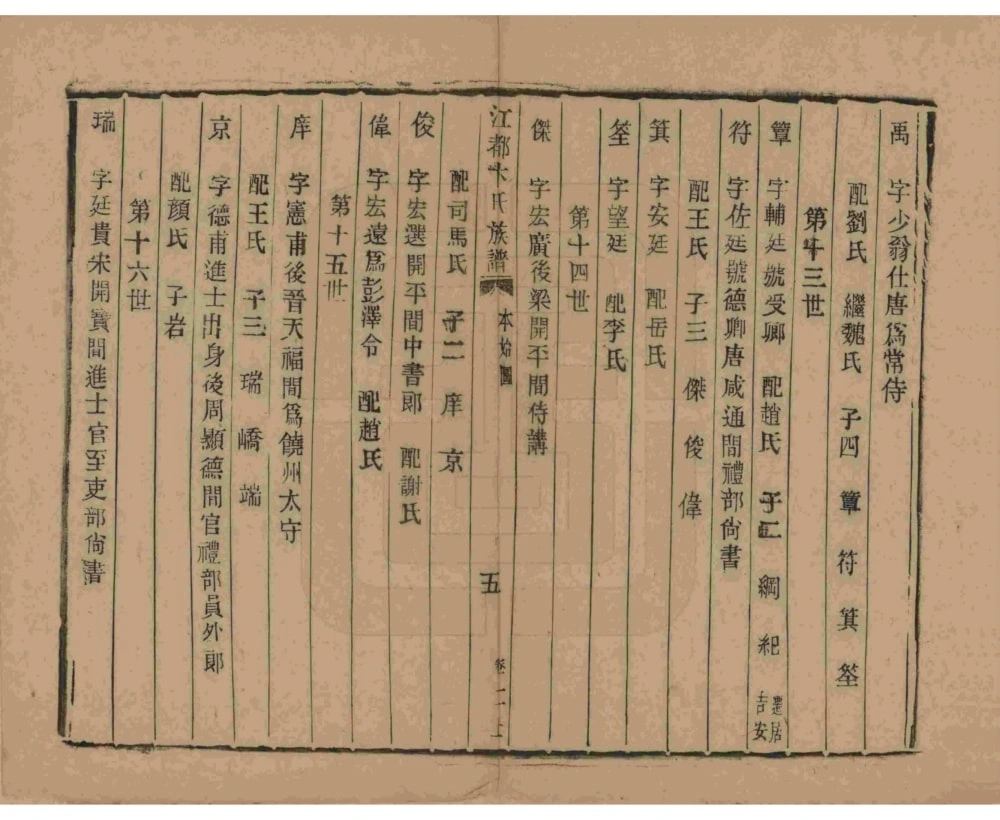 禹 字少翁仕唐爲常侍
配劉氏 繼魏氏 子四 簟 符 箕 筌
第十三世
簟 字輔廷號受卿 配趙氏 子二 綱 紀 遷居吉安
符 字佐廷號德卿唐咸通間禮部尙書
配王氏 子三 傑 俊 偉
箕 字安廷 配岳氏
筌 字望廷 配李氏
第十四世
傑 字宏廣後梁開平間侍講
江都卞氏族譜 本始圖 五 卷二上
配司馬氏 子二 庠 京
俊 字宏選開平間中書郞 配謝氏
偉 字宏遠爲彭澤令 配趙氏
第十五世
庠 字憲甫後晉天福間爲饒州太守
配王氏 子三 瑞 嶠 端
京 字德甫進士出身後周顯德間官禮部員外郞
配顔氏 子岩
第十六世
瑞 字廷貴宋開寶間進士官至吏部尙書